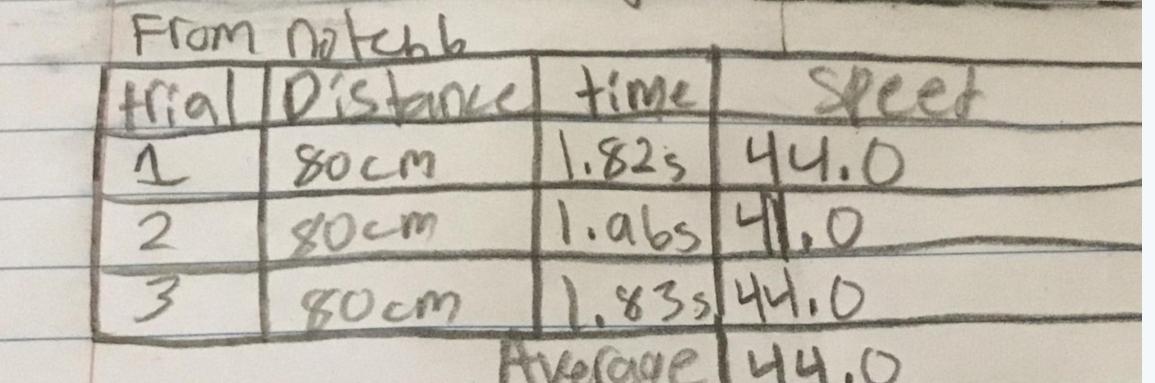 From notch 6
trial Distance time Speed
1 80cm 1.82s 44.0
2 80cm 1.96s 41.0
3 80cm 1.83s 44.0
Average 44.0